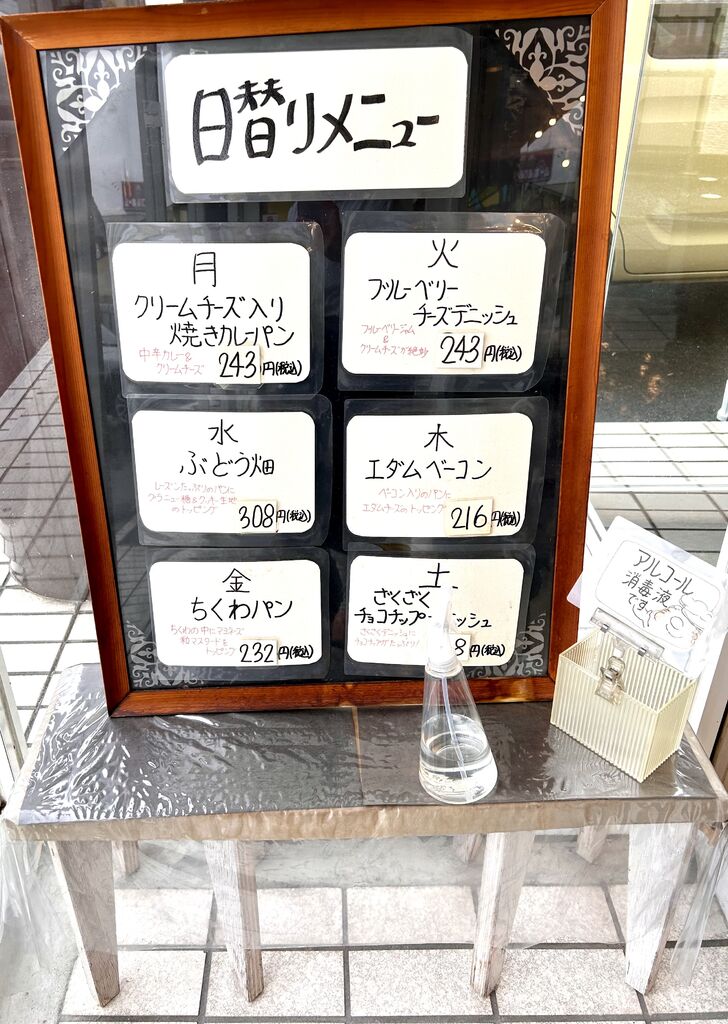 日替りメニュー
月
クリームチーズ入り
焼きカレーパン
中辛カレー&
クリームチーズ
243円(税込)
火
ブルーベリー
チーズデニッシュ
ブルーベリージャム
&
クリームチーズが絶妙
243円(税込)
水
ぶどう畑
レーズンたっぷりのパンに
グラニュー糖&クッキー生地
のトッピング
308円(税込)
木
エダムベーコン
ベーコン入りのパンに
エダムチーズのトッピング
216円(税込)
金
ちくわパン
ちくわの中にマヨネーズ
粒マスタードを
トッピング
232円(税込)
土
ざくざく
チョコチップ
ざくざくデニッシュに
8円(税込)
アルコール
消毒液
です